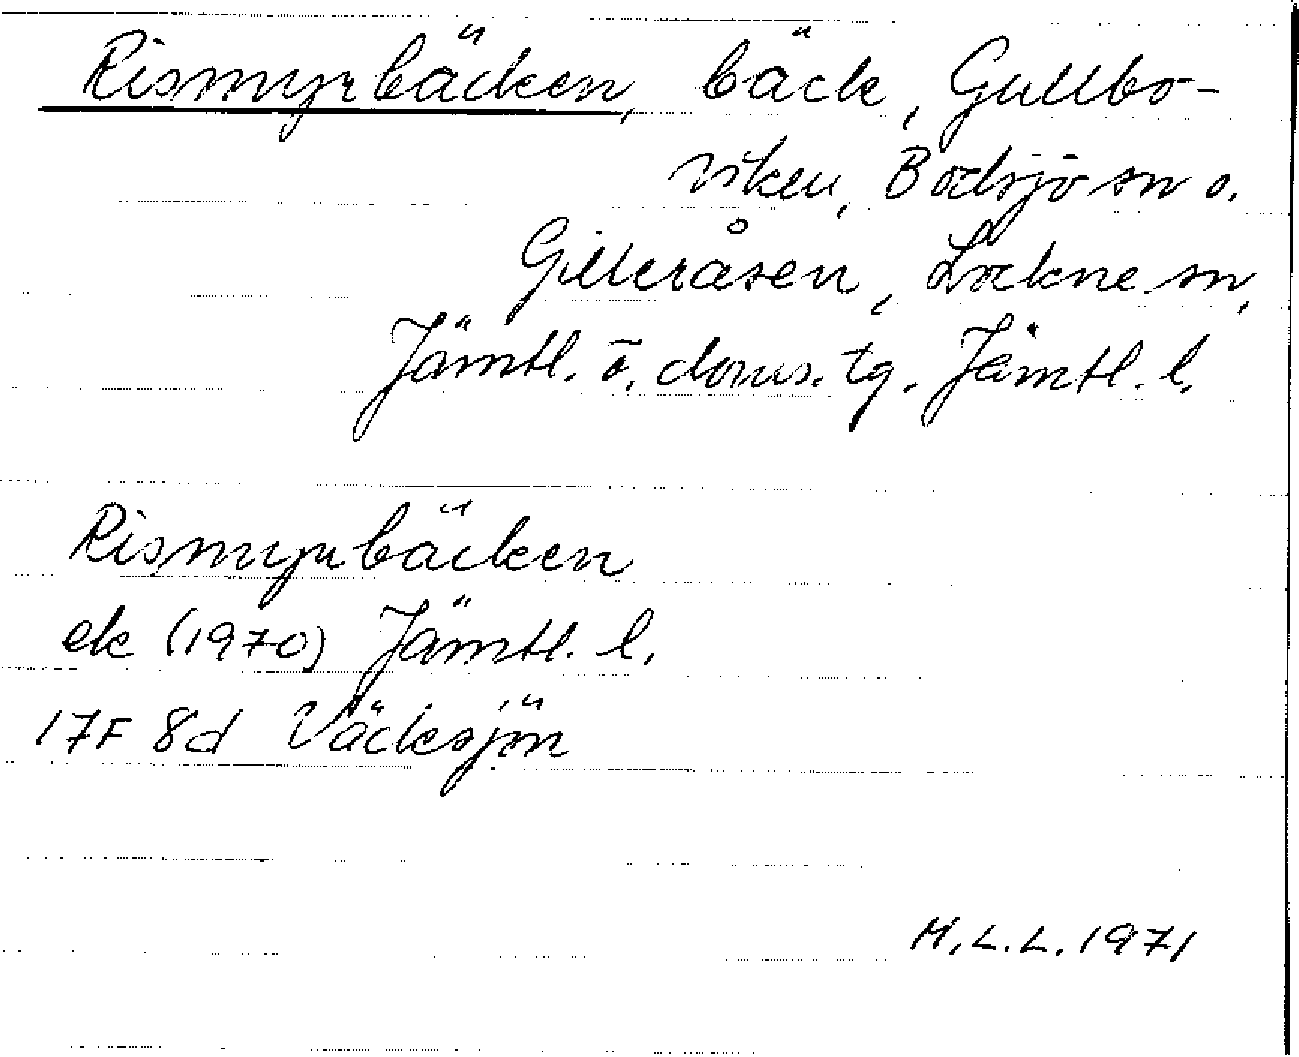 Rismyrbäcken, bäck, Gullbo-
viken, Bodsjö sn o.
Gilleråsen, Lockne sn,
Jämtl. ö. doms. tg. Jämtl. l.
Rismyrbäcken
ek (1970) Jämtl. l.
17F 8d Väcksjön
M.L.L. 1971